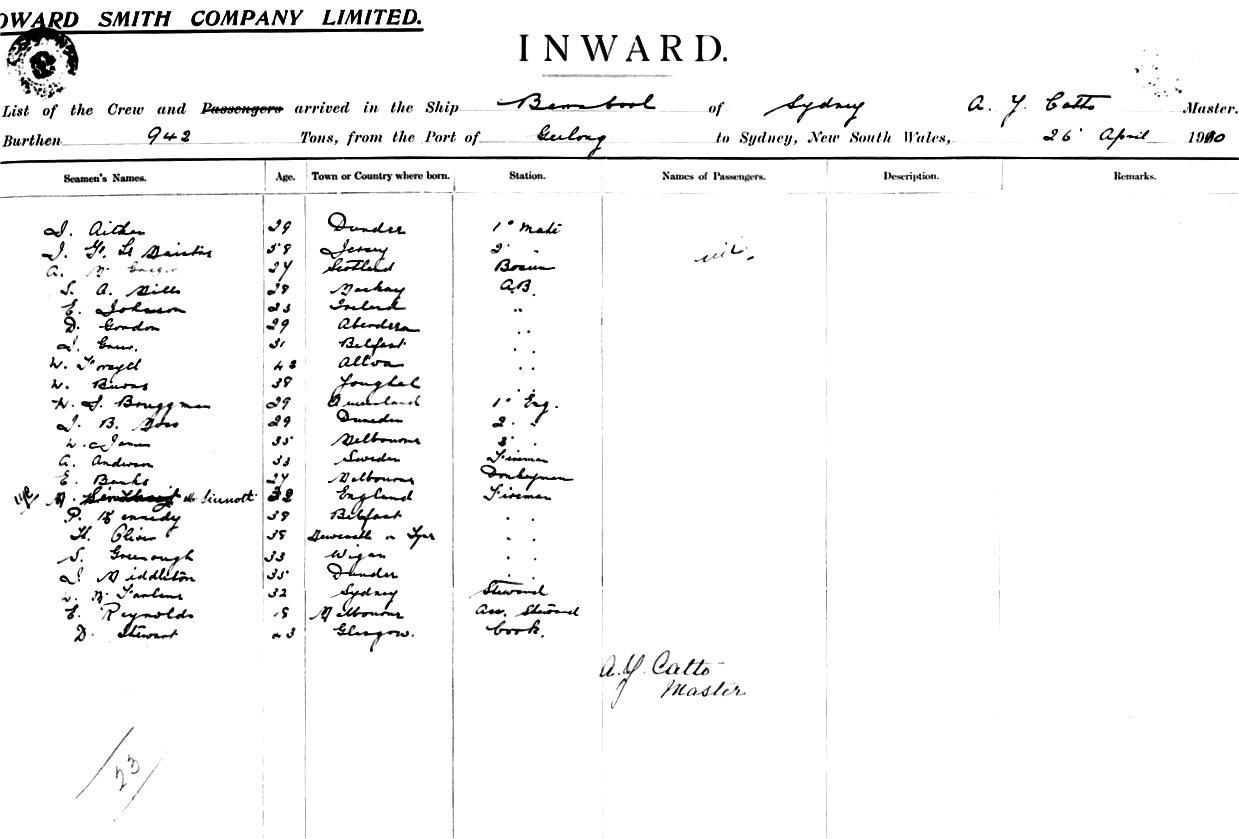 OWARD SMITH COMPANY LIMITED.
INWARD.
List of the Crew and Passengers arrived in the Ship Barrabool of Sydney A. Y. Catto Master.
Burthen 942 Tons, from the Port of Geelong to Sydney, New South Wales, 26 April 1910
Seamen's Names. Age. Town or Country where born. Station. Names of Passengers. Description. Remarks.
J. Aitken 29 Dundee 1° Mate
J. G. Le 58 Jersey 2 "
nil.
A. 27 Scotland Bosun
S. A. Mills 28 Mackay A.B.
E. Johnson 23 Ireland "
D. Gordon 29 Aberdeen "
J. 31 Belfast "
W. 43 Alloa "
W. Burns 38 Youghal "
W. J. Bruggman 29 Queensland 1° Eng.
J. B. Ross 29 Dunedin 2 "
W. James 35 Melbourne 3 "
A. Anderson 33 Sweden Fireman
E. Banks 27 Melbourne Donkeyman
M. Sinnott 32 England Fireman
P. Kennedy 38 Belfast "
H. Oliver 38 Newcastle on Tyne "
S. Greenough 33 Wigan "
J. Middleton 35 Dundee "
W. McFarlane 32 Sydney Steward
E. Reynolds 18 Melbourne Ass. Steward
D. Stewart 43 Glasgow. Cook.
A. Y. Catto
Master
23